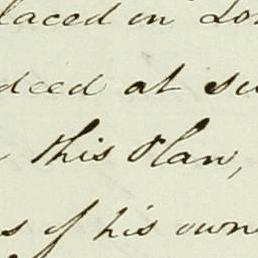 laced in Lo
deed at su
this Plan,
s of his own